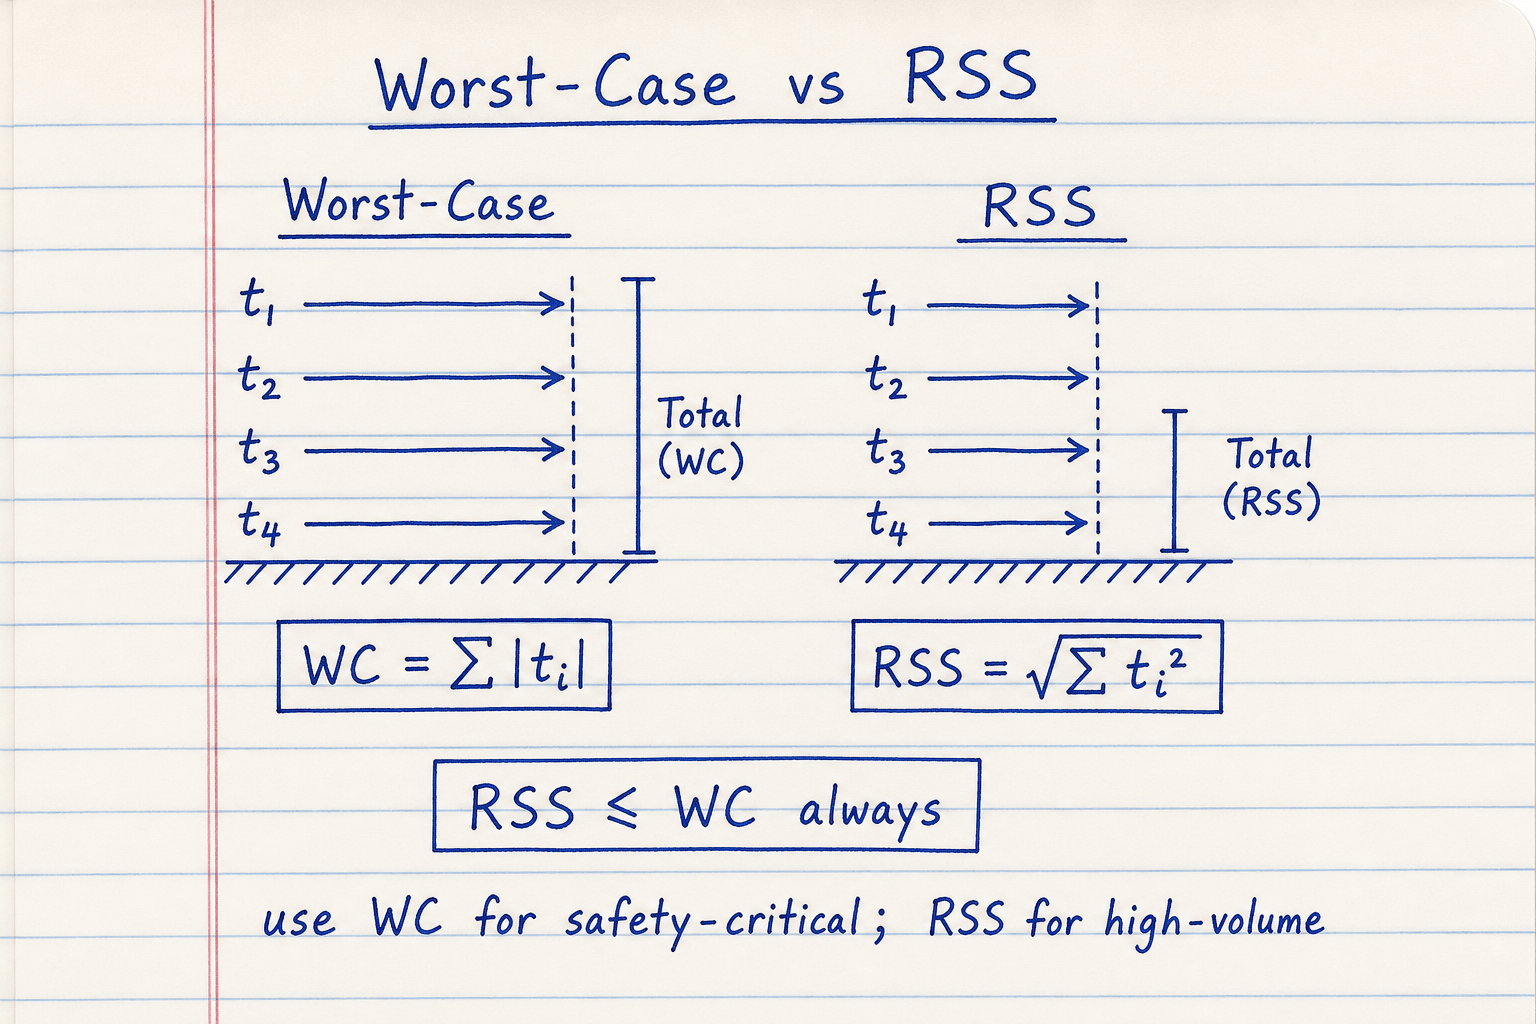 Worst-Case vs RSS
Worst-Case
t₁
t₂
t₃
t₄
Total
(WC)
WC = ∑ |tᵢ|
RSS
t₁
t₂
t₃
t₄
Total
(RSS)
RSS = √∑ tᵢ²
RSS ⩽ WC always
use WC for safety-critical; RSS for high-volume